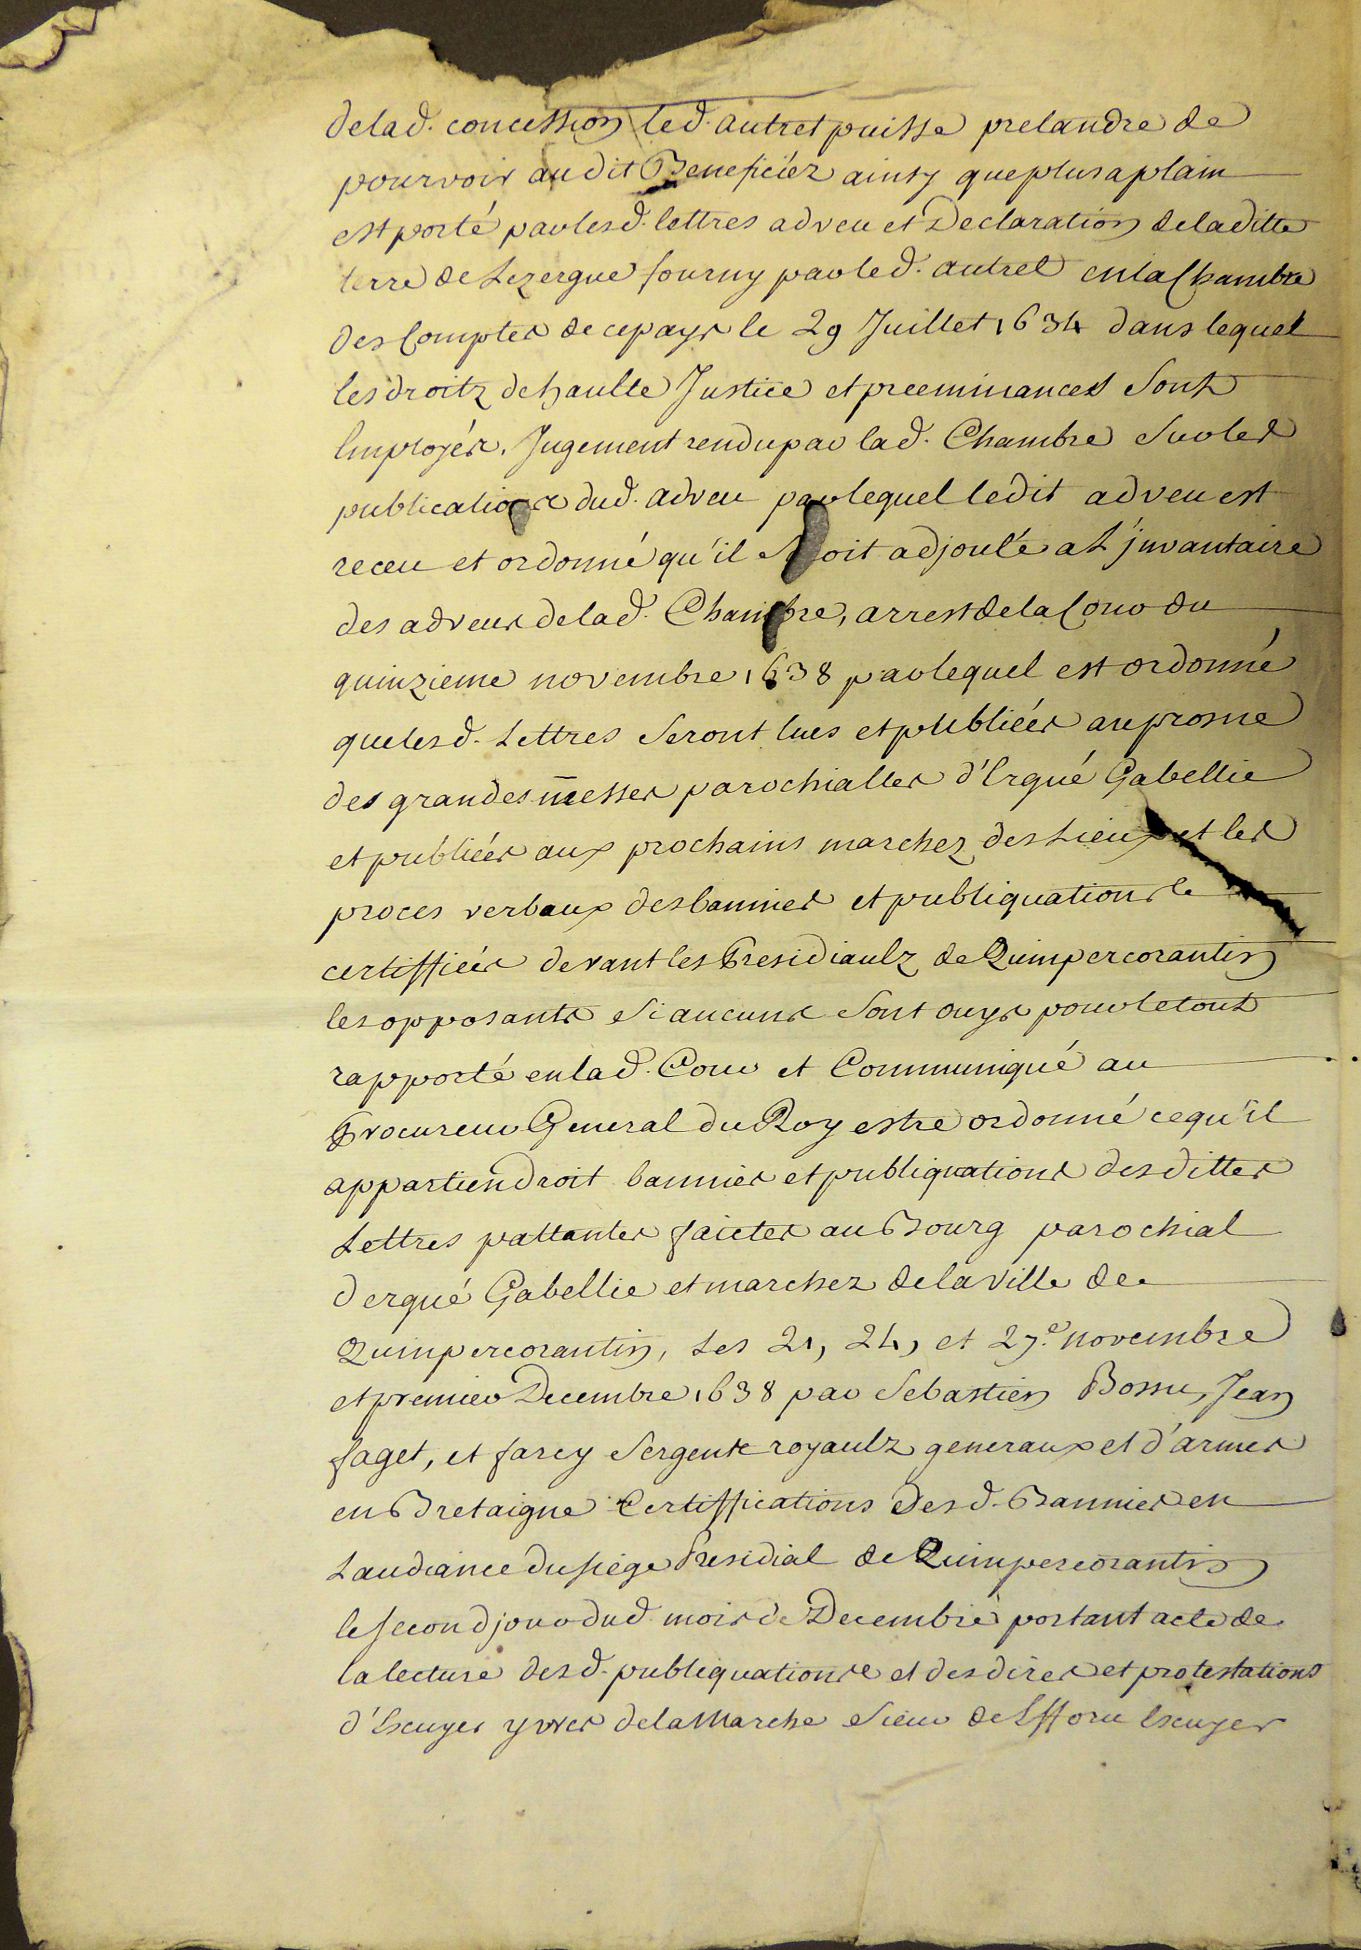 delad. concession led. autret puisse pretandre de
pourvoir audit Beneficiéz ainsy que plus a plain
est porté par lesd. lettres adveu et Declaration de laditte
terre de Lezergue fourny par led. autret en la Chambre
des Comptes de ce pays le 29 Juillet 1634 dans lequel
les droitz de haulte Justice et preeminances sont
Employés. Jugement rendu par lad. Chambre sur les
publications dud. adveu par lequel ledit adveu est
receu et ordonné qu'il soit adjouté a L'jnvantaire
des adveus de lad. Chambre, arrest de la Cour du
quinzieme novembre 1638 par lequel est ordonné
que lesd. Lettres seront lues et publiées au prosne
des grandes messes parochialles d'Ergué Gabellic
et publiées aux prochains marchez des Lieux et les
proces verbaux des bannies et publiquations
certiffiées devant les Presidiaulz de Quimpercorantin
les opposants si aucuns sont ouys pour le tout
rapporté en lad. Cour et Communiqué au
Procureur General du Roy estre ordonné ce qu'il
appartiendroit bannies et publiquations des dittes
Lettres pattantes faictes au Bourg parochial
d'ergué Gabellic et marchez de la ville de
Quimpercorantin, Les 21, 24, et 27.e novembre
et premier Decembre 1638 par Sebastien Bossu, Jean
faget, et farcy Sergents royaulz generaux et d'armes
en Bretaigne Certiffications desd. Bannies en
Laudiance du siége Presidial de Quimpercorantin
le second jour dud. mois de Decembre portant acte de
la lecture desd. publiquations et des dires et protestations
d'Escuyer yves de la Marche Sieur de Escuyer